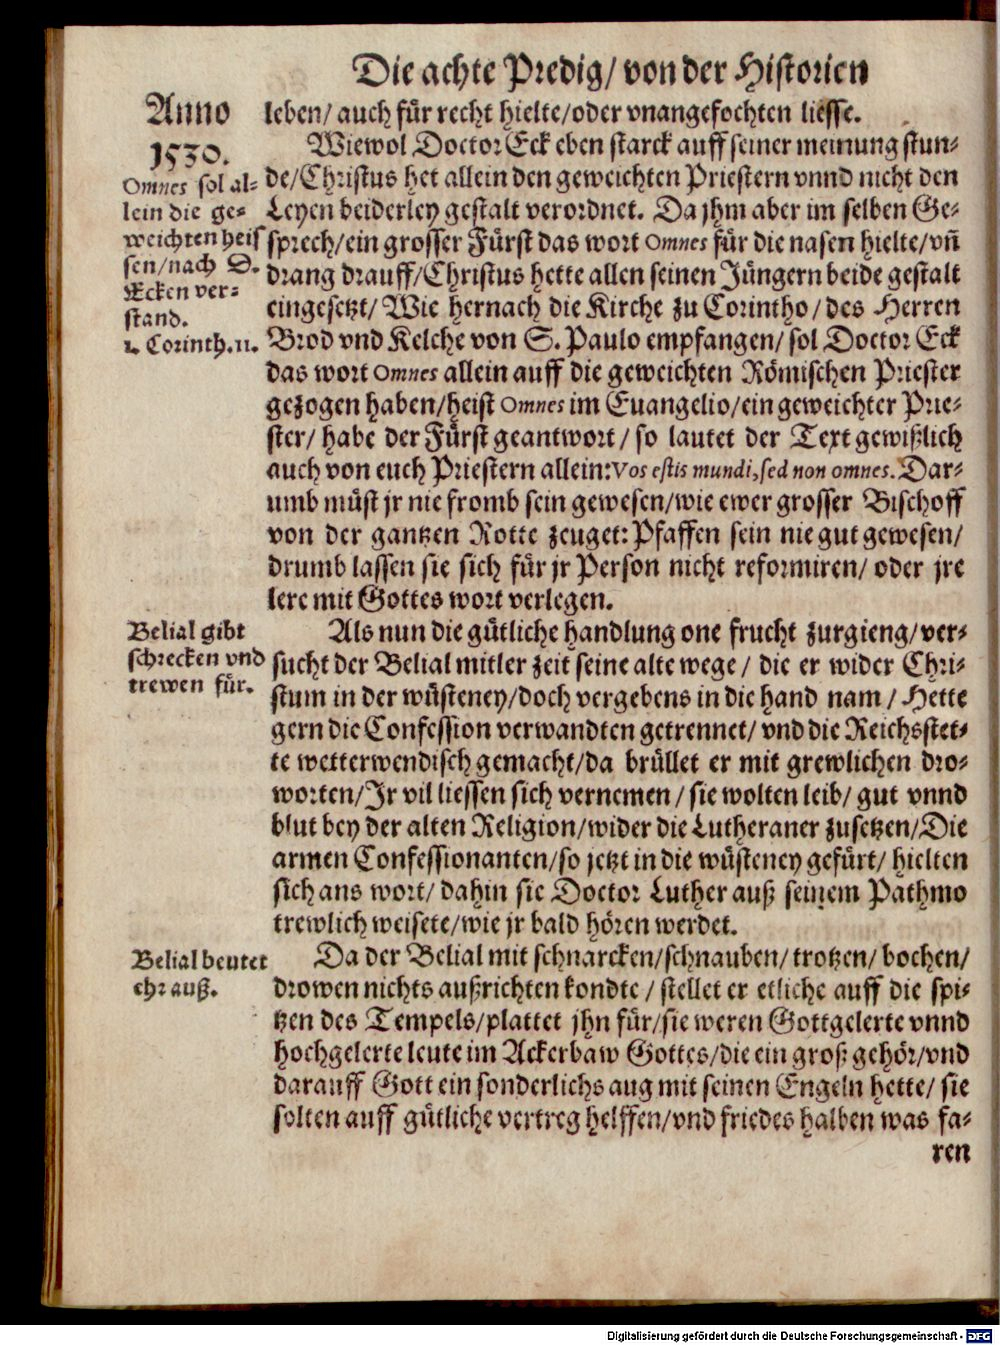 Die achte Predig/ von der Historien
Anno
1530.
Omnes sol al-
lein die ge-
weichten heis
sen/nach D.
Ecken ver-
stand.
1. Corinth.11.
leben/ auch für recht hielte/oder vnangefochten liesse.
Wiewol Doctor Eck eben starck auff seiner meinung stun-
de/Christus het allein den geweichten Priestern vnnd nicht den
Leyen beiderley gestalt verordnet. Da jhm aber im selben Ge-
sprech/ein grosser Fürst das wort Omnes für die nasen hielte/vñ
drang drauff/Christus hette allen seinen Jüngern beide gestalt
eingesetzt/ Wie hernach die Kirche zu Corintho/des Herren
Brod vnd Kelche von S. Paulo empfangen/ sol Doctor Eck
das wort Omnes allein auff die geweichten Römischen Priester
gezogen haben/heist Omnes im Euangelio/ein geweichter Prie-
ster/ habe der Fürst geantwort/ so lautet der Text gewißlich
auch von euch Priestern allein: Vos estis mundi, sed non omnes. Dar-
umb müst jr nie fromb sein gewesen/wie ewer grosser Bischoff
von der gantzen Rotte zeuget: Pfaffen sein nie gut gewesen/
drumb lassen sie sich für jr Person nicht reformiren/ oder jre
lere mit Gottes wort verlegen.
Belial gibt
schrecken vnd
trewen für.
Als nun die gütliche handlung one frucht zurgieng/ver-
sucht der Belial mitler zeit seine alte wege/ die er wider Chri-
stum in der wüsteney/doch vergebens in die hand nam/ Hette
gern die Confession verwandten getrennet/ vnd die Reichsstet-
te wetterwendisch gemacht/da brüllet er mit grewlichen dro-
worten/Jr vil liessen sich vernemen/ sie wolten leib/ gut vnnd
blut bey der alten Religion/wider die Lutheraner zusetzen/Die
armen Confessionanten/so jetzt in die wüsteney gefürt/ hielten
sich ans wort/ dahin sie Doctor Luther auß seinem Pathmo
trewlich weisete/wie jr bald hören werdet.
Belial beutet
ehr auß.
Da der Belial mit schnarcken/schnauben/ trotzen/ bochen/
drowen nichts außrichten kondte/ stellet er etliche auff die spi-
tzen des Tempels/plattet jhn für/sie weren Gottgelerte vnnd
hochgelerte leute im Ackerbaw Gottes/die ein groß gehör/vnd
darauff Gott ein sonderlichs aug mit seinen Engeln hette/ sie
solten auff gütliche vertreg helffen/vnd friedes halben was fa-
ren
Digitalisierung gefördert durch die Deutsche Forschungsgemeinschaft - DFG